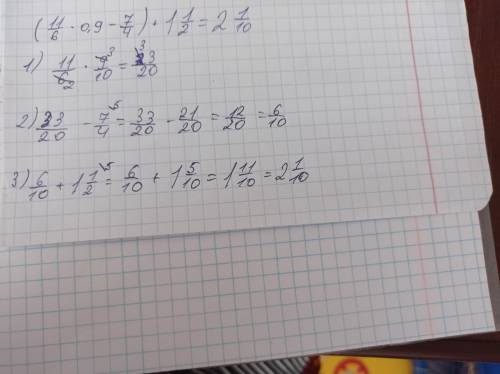 (11/6 · 0,9 - 7/4) + 1 1/2 = 2 1/10
1) 11/6₂ · 9³/10 = 33/20
2) 33/20 - 7⁵/4 = 33/20 - 21/20 = 12/20 = 6/10
3) 6/10 + 1 1⁵/2 = 6/10 + 1 5/10 = 1 11/10 = 2 1/10